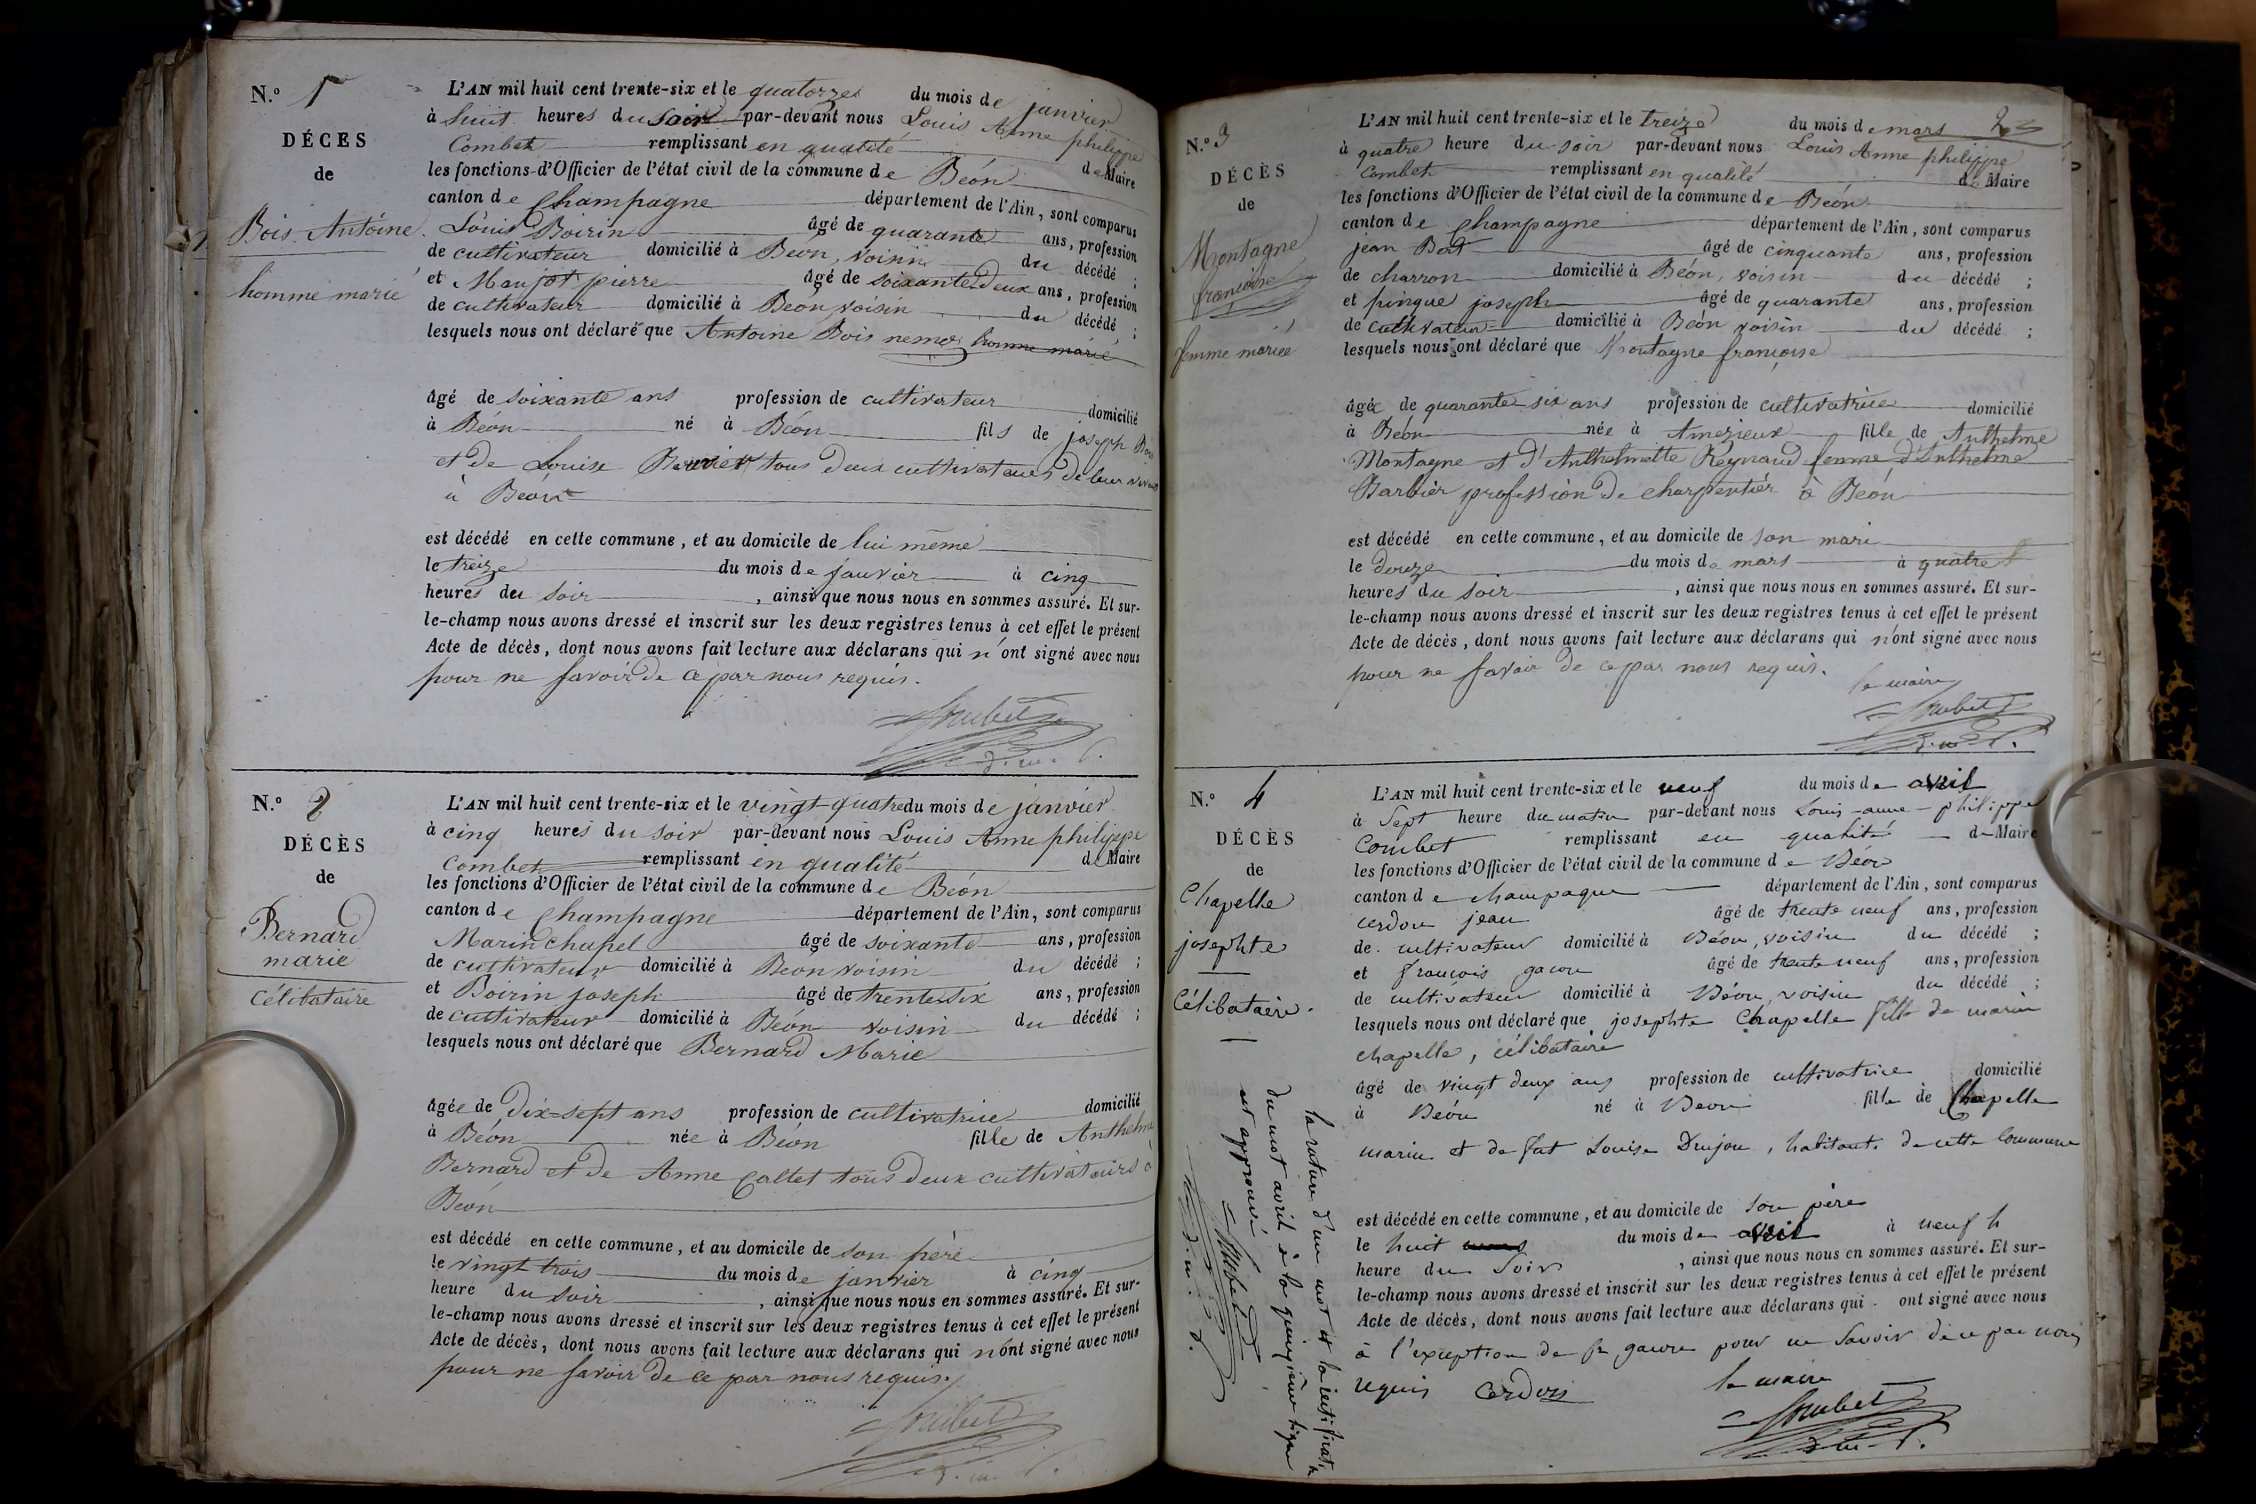 N.º 1
DÉCES
de
Bois Antoine
homme marié
L'AN mil huit cent trente-six et le quatorze du mois de janvier
à huit heures du soir par-devant nous Louis Anne philippe
Combet remplissant en qualité de Maire
les fonctions d'Officier de l'état civil de la commune de Béon
canton de Champagne département de l'Ain, sont comparus
Louis Boirin âgé de quarante ans, profession
de cultivateur domicilié à Béon, voisin du décédé ;
et Maujot pierre âgé de soixante deux ans, profession
de cultivateur domicilié à Béon voisin du décédé ;
lesquels nous ont déclaré que Antoine Bois homme marié
âgé de soixante ans profession de cultivateur domicilié
à Béon né à Béon fils de joseph Bois
et de Louise tous deux cultivateurs de leur vivant
à Béon
est décédé en cette commune, et au domicile de lui même
le treize du mois de janvier à cinq
heures du soir , ainsi que nous nous en sommes assuré. Et sur-
le-champ nous avons dressé et inscrit sur les deux registres tenus à cet effet le présent
Acte de décès, dont nous avons fait lecture aux déclarans qui n'ont signé avec nous
pour ne savoir de ce par nous requis.
Combet
N.º 2
DÉCÈS
de
Bernard
marie
célibataire
L'AN mil huit cent trente-six et le vingt-quatre du mois de janvier
à cinq heures du soir par-devant nous Louis Anne philippe
Combet remplissant en qualité de Maire
les fonctions d'Officier de l'état civil de la commune de Béon
canton de Champagne département de l'Ain, sont comparus
Marin chapel âgé de soixante ans, profession
de cultivateur domicilié à Béon voisin du décédé ;
et Boirin joseph âgé de trente six ans, profession
de cultivateur domicilié à Béon voisin du décédé ;
lesquels nous ont déclaré que Bernard Marie
âgée de dix-sept ans profession de cultivatrice domicilié
à Béon née à Béon fille de Anthelme
Bernard et de Anne Callet tous deux cultivateurs à
Béon
est décédé en cette commune, et au domicile de son père
le vingt trois du mois de janvier à cinq
heure du soir , ainsi que nous nous en sommes assuré. Et sur-
le-champ nous avons dressé et inscrit sur les deux registres tenus à cet effet le présent
Acte de décès, dont nous avons fait lecture aux déclarans qui n'ont signé avec nous
pour ne savoir de ce par nous requis.
Combet
N.º 3
DÉCÈS
de
Montagne
françoise
femme mariée
L'AN mil huit cent trente-six et le treize du mois de mars 2
à quatre heure du soir par-devant nous Louis Anne philippe
Combet remplissant en qualité de Maire
les fonctions d'Officier de l'état civil de la commune de Béon
canton de Champagne département de l'Ain, sont comparus
jean Bot âgé de cinquante ans, profession
de charron domicilié à Béon, voisin du décédé ;
et pingue joseph âgé de quarante ans, profession
de cultivateur domicilié à Béon voisin du décédé ;
lesquels nous ont déclaré que Montagne françoise
âgée de quarante-six ans profession de cultivatrice domicilié
à Béon née à Amezieux fille de Anthelme
Montagne et d'Anthelmette Reynaud femme d'Anthelme
Barbier profession de charpentier à Béon
est décédé en cette commune, et au domicile de son mari
le douze du mois de mars à quatre
heures du soir , ainsi que nous nous en sommes assuré. Et sur-
le-champ nous avons dressé et inscrit sur les deux registres tenus à cet effet le présent
Acte de décès, dont nous avons fait lecture aux déclarans qui n'ont signé avec nous
pour ne savoir de ce par nous requis.
le maire
Combet
N.º 4
DÉCÈS
de
Chapelle
josephte
Célibataire.
la rature d'un mot et la rectificat.n
du mot avril à la quinzième ligne
est approuvé
Combet
L'AN mil huit cent trente-six et le neuf du mois de avril
à Sept heure du matin par-devant nous Louis-anne-philippe
Combet remplissant en qualité de Maire
les fonctions d'Officier de l'état civil de la commune de Béon
canton de champagne département de l'Ain, sont comparus
cerdon jean âgé de trente neuf ans, profession
de cultivateur domicilié à Béon, voisin du décédé ;
et françois gacon âgé de trente neuf ans, profession
de cultivateur domicilié à Béon, voisin du décédé ;
lesquels nous ont déclaré que josephte Chapelle fille de marin
chapelle, célibataire
âgé de vingt deux ans profession de cultivatrice domicilié
à Béon né à Béon fille de Chapelle
marin et de fut Louise Dujon, habitants de cette Commune
est décédé en cette commune, et au domicile de son père
le huit du mois de avril à neuf h
heure du Soir , ainsi que nous nous en sommes assuré. Et sur-
le-champ nous avons dressé et inscrit sur les deux registres tenus à cet effet le présent
Acte de décès, dont nous avons fait lecture aux déclarans qui ont signé avec nous
à l'exception de fr gacon pour ne savoir de ce par nous
requis Cerdon le maire
Combet